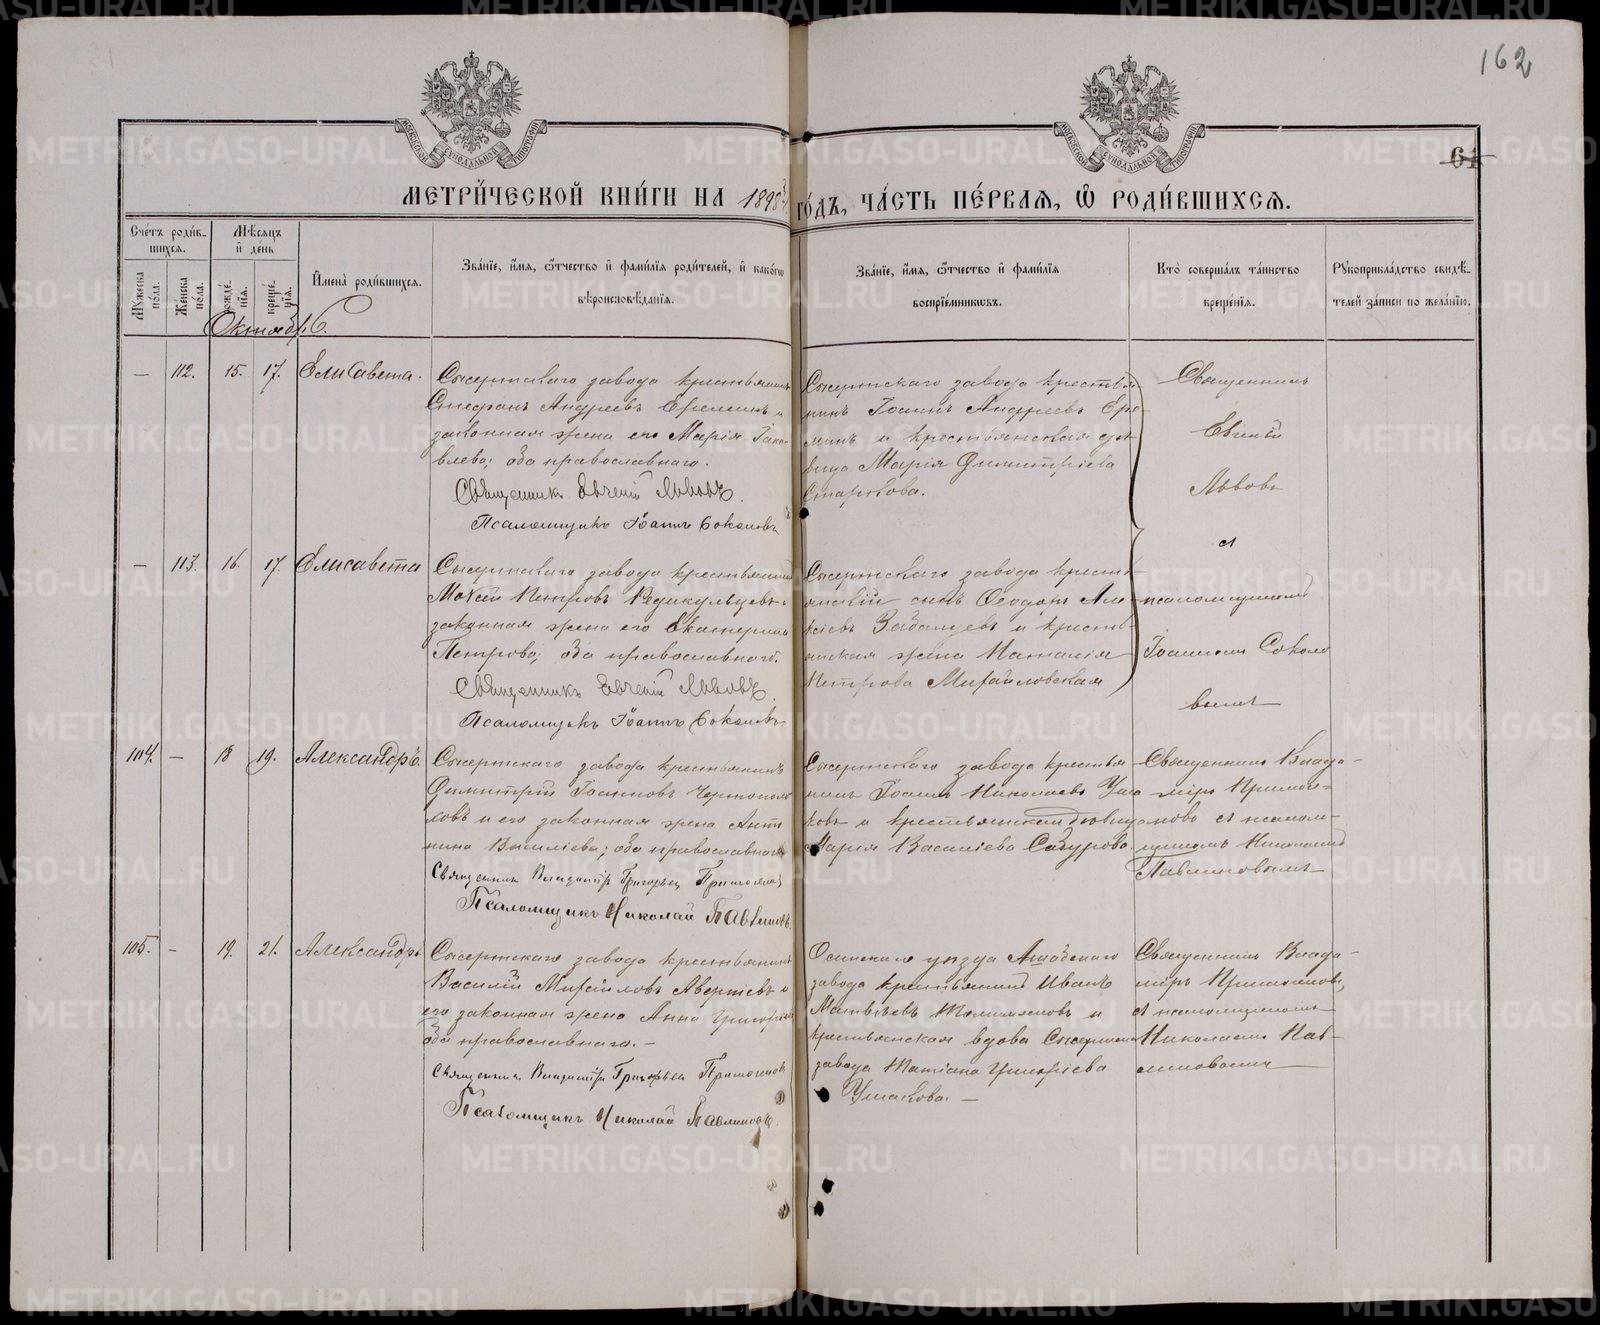 162
61
МЕТРИ́ЧЕСКОЙ КНИ́ГИ НА 1893 ГО́ДЪ, ЧА́СТЬ ПЕ́РВАЯ, Ѡ РОДИ́ВШИХСЯ.
Сче́тъ роди́вшихся.
Му́жеска по́ла.
Же́нска по́ла.
Мѣ́сяцъ и де́нь
рожде́нія.
креще́нія.
Имена̀ роди́вшихся.
Зва́ніе, и́мя, ѻ́тчество и фами́лія роди́телей, и како́гѡ
вѣроисповѣ́данія.
Зва́ніе, и́мя, ѻ́тчество и фами́лія
воспрiе́мниковъ.
Кто̀ соверша́лъ та́инство
креще́нія.
Рукоприкла́дство свидѣ́-
телей за́писи по жела́нію.
Октябрь
— 112. 15. 17. Елисавета.
Сысертскаго завода крестьянинъ
Стефанъ Андреевъ Ереминъ и
законная жена его Марія Іако-
влева; оба православнаго.
Священникъ Евгеній Львовъ.
Псаломщикъ Іоаннъ Соколовъ
Сысертскаго завода крестья-
нинъ Іоаннъ Андреевъ Ере-
минъ и крестьянская дѣ-
вица Марія Димитріева
Старкова.
Священникъ
Евгеній
Львовъ
съ
псаломщикомъ
Іоанномъ Соколо
вымъ
— 113. 16. 17. Елисавета
Сысертскаго завода крестьянинъ
Моѵсей Петровъ и
законная жена его Екатерина
Петрова; оба православнаго.
Священникъ Евгеній Львовъ.
Псаломщикъ Іоаннъ Соколовъ
Сысертскаго завода кресть-
янскій сынъ Ѳеодоръ Але-
ксіевъ и кресть-
янская жена Наталія
Петрова Михайловская
104. — 18 19. Александръ.
Сысертскаго завода крестьянинъ
Димитрій Іоанновъ
и его законная жена Анто
нина Василіева; оба православнаго
Священникъ Владиміръ Григорьев
Псаломщикъ Николай Павлиновъ.
Сысертскаго завода крестья
нинъ Іоаннъ Николаевъ Уша
ковъ и крестьянская дѣвица
Марія Василіева Сабурова
Священникъ Влади-
міръ
съ псалом-
щикомъ Николаемъ
Павлиновымъ
105. — 19. 21. Александръ
Сысертскаго завода крестьянинъ
Василій Михайловъ Аверкіевъ и
его законная жена Анна Григорьева
оба православнаго. —
Священникъ Владиміръ Григорьев
Псаломщикъ Николай Павлиновъ.
Осинскаго уѣзда
завода крестьянинъ Иванъ
Матвѣевъ и
крестьянская вдова Сысертскаго
завода Татіана Григоріева
Ушакова. —
Священникъ Влади-
міръ
съ псаломщикомъ
Николаемъ Пав-
линовымъ
METRIKI.GASO-URAL.RU